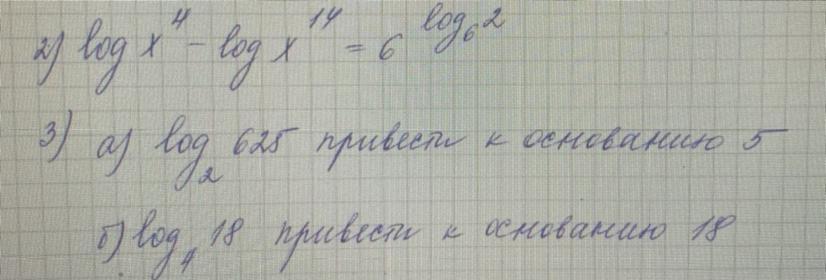 2) log x⁴ - log x¹⁴ = 6^log₆2
3) а) log₂ 625 привести к основанию 5
б) log₄ 18 привести к основанию 18